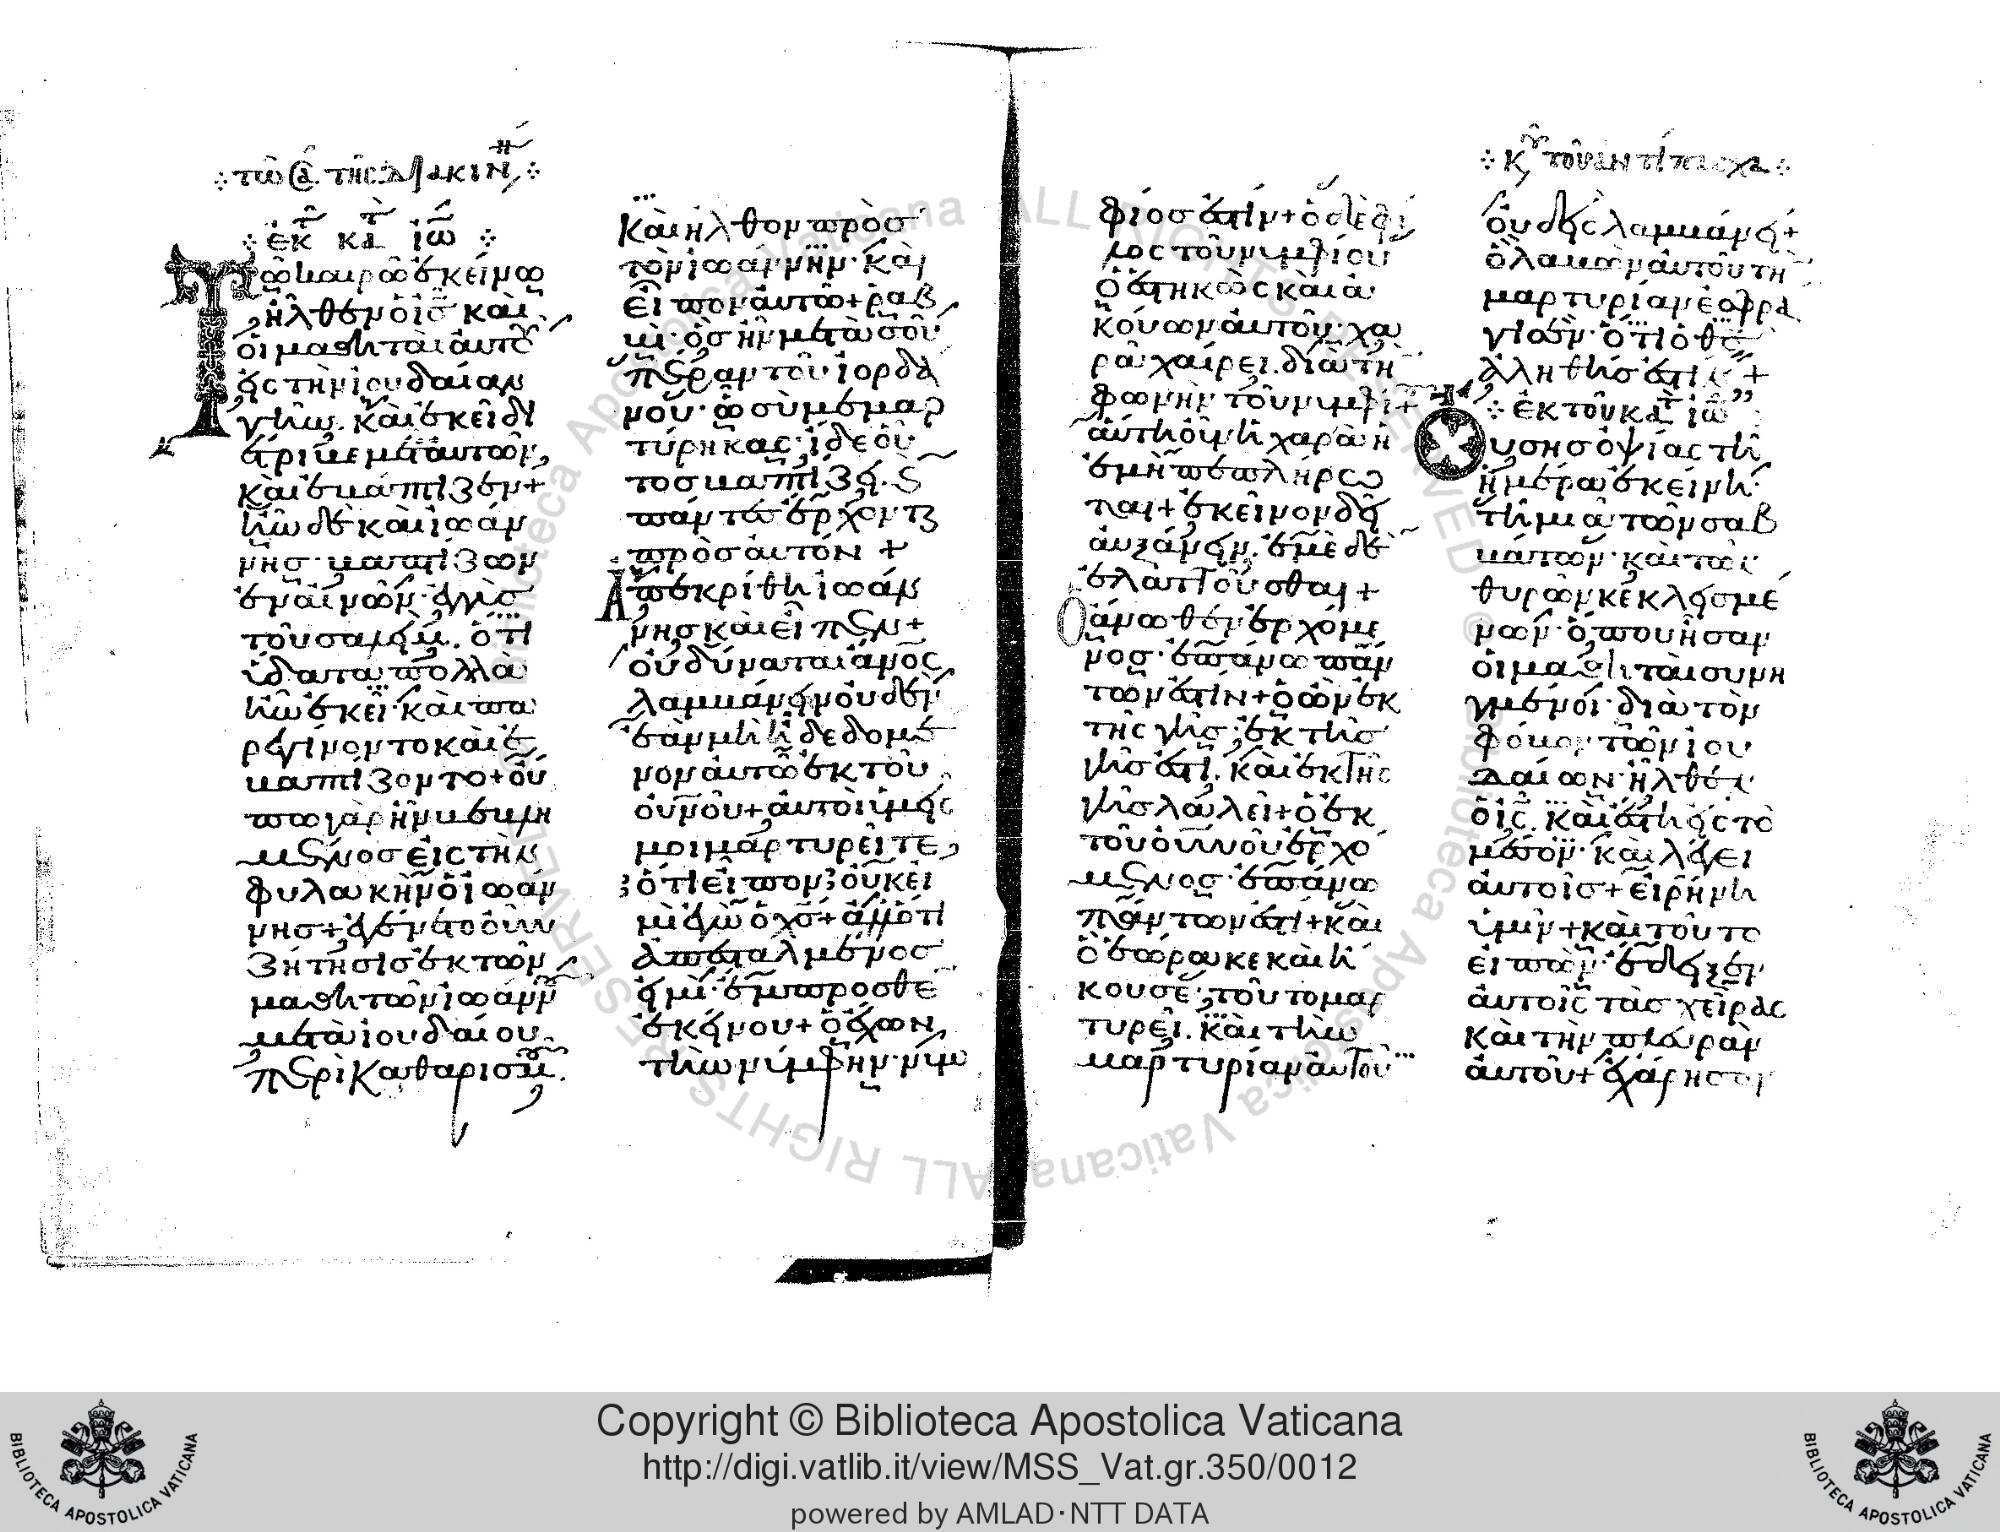 τῶ σα τῆς διακινη
ἐκ τ κατ ιω
Τῶ καιρῶ ἐκείνω
ἦλθεν ὁ ισ καὶ
οἱ μαθηταὶ αὐτοῦ
εἰς τὴν ἰουδαίαν
γῆν. καὶ ἐκεῖ δι
έτριβε μετ αὐτῶν,
καὶ ἐβάπτιζεν+
ἦν δὲ καὶ ἰωάν
νης βαπτίζων
ἐν αἰνῶν ἐγγὺς
τοῦ σαλείμ. ὅτι
ὕδατα πολλὰ
ἦν ἐκεῖ καὶ πα
ρεγίνοντο καὶ ἐ
βαπτίζοντο+ οὔ
πω γὰρ ἦν βεβλη
μένος εἰς τὴν
φυλακὴν ὁ ἰωάν
νης+ ἐγένετο οὖν
ζήτησις ἐκ τῶν
μαθητῶν ἰωάννου
μετὰ ἰουδαίου
περὶ καθαρισμοῦ.
Καὶ ἦλθον πρὸς
τὸν ἰωάννην. καὶ
εἶπον αὐτῶ+ ραβ
βι· ὃς ἦν μετὰ σοῦ
πέραν τοῦ ἰορδά
νου· ὧ σὺ μεμαρ
τύρηκας· ἴδε οὗ
τος βαπτίζει. καὶ
πάντες ἔρχονται
πρὸς αὐτόν +
Ἀπεκρίθη ἰωάν
νης καὶ εἶπεν+
οὐ δύναται ἄνος
λαμβάνειν οὐδὲν
ἐὰν μὴ ἦ δεδομέ
νον αὐτῶ ἐκ τοῦ
οὐνοῦ+ αὐτοὶ ὑμεῖς
μοι μαρτυρεῖτε,
ὅτι εἶπον· οὐκ εἰ
μὶ ἐγὼ ὁ χσ+ ἀλλ ὅτι
ἀπεσταλμένος
εἰμὶ ἔμπροσθεν
ἐκείνου+ ὁ ἔχων
τὴν νύμφην· νυμ
φίος ἐστὶν+ ὁ δὲ φί
λος τοῦ νυμφίου
ὁ ἑστηκὼς καὶ ἀ
κούων αὐτοῦ· χα
ρᾶ χαίρει. διὰ τὴν
φωνὴν τοῦ νυμφίου+
αὕτη οὖν ἡ χαρὰ ἡ
ἐμὴ πεπλήρω
ται+ ἐκεῖνον δεῖ
αὐξάνειν. ἐμὲ δὲ
ἐλαττοῦσθαι+
Ὁ ἄνωθεν ἐρχόμε
νος· ἐπάνω πάν
των ἐστὶν+ ὁ ὢν ἐκ
τῆς γῆς· ἐκ τῆς
γῆς ἐστὶ. καὶ ἐκ τῆς
γῆς λαλεῖ+ ὁ ἐκ
τοῦ οὐνοῦ ἐρχό
μενος· ἐπάνω
πάντων ἐστὶ+ καὶ
ὃ ἑώρακε καὶ ἤ
κουσε· τοῦτο μαρ
τυρεῖ. καὶ τὴν
μαρτυρίαν αὐτοῦ
κυ τοῦ ἀντίπασχα
οὐδεὶς λαμβάνει+
ὁ λαβὼν αὐτοῦ τὴν
μαρτυρίαν ἐσφρά
γισεν· ὅτι ὁ θς
ἀληθής ἐστιν+
ἐκ τοῦ κατ ιω
Οὔσης ὀψίας τῆ
ἡμέρα ἐκείνη·
τῆ μιᾶ τῶν σαβ
βάτων· καὶ τῶν
θυρῶν κεκλεισμέ
νων· ὅπου ἦσαν
οἱ μαθηταὶ συνη
γμένοι· διὰ τὸν
φόβον τῶν ἰου
δαίων· ἦλθεν
ὁ ισ. καὶ ἔστη εἰς τὸ
μέσον· καὶ λέγει
αὐτοῖς+ εἰρήνη
ὑμῖν+ καὶ τοῦτο
εἰπὼν· ἔδειξεν
αὐτοῖς τὰς χεῖρας
καὶ τὴν πλευρὰν
αὐτοῦ+ ἐχάρησαν
Copyright © Biblioteca Apostolica Vaticana
http://digi.vatlib.it/view/MSS_Vat.gr.350/0012
powered by AMLAD·NTT DATA
BIBLIOTECA APOSTOLICA VATICANA
BIBLIOTECA APOSTOLICA VATICANA